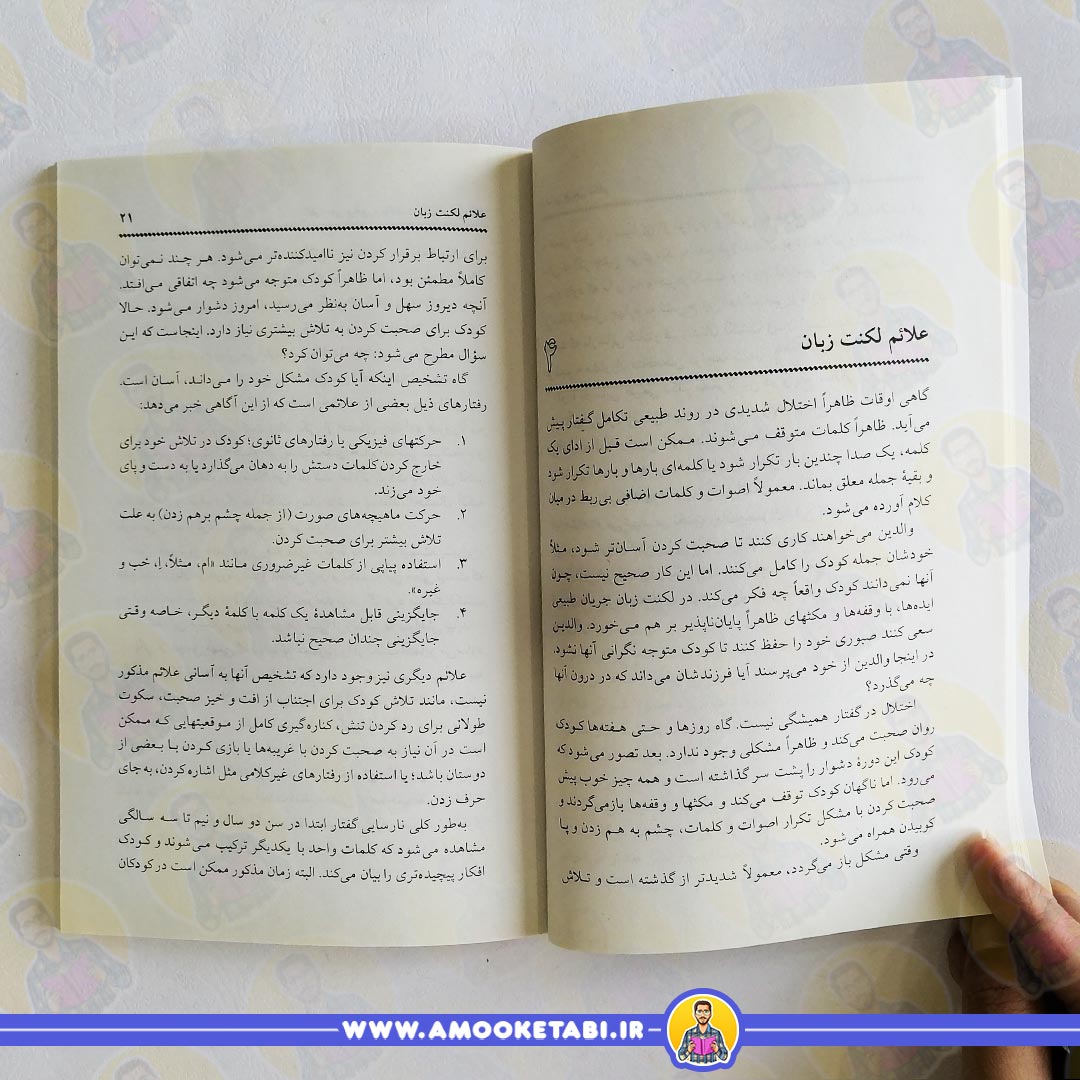 علائم لکنت زبان
۴
گاهی اوقات ظاهراً اختلال شدیدی در روند طبیعی تکامل گفتار پیش
می‌آید. ظاهراً کلمات متوقف می‌شوند. ممکن است قبل از ادای یک
کلمه، یک صدا چندین بار تکرار شود یا کلمه‌ای بارها و بارها تکرار شود
و بقیهٔ جمله معلق بماند. معمولاً اصوات و کلمات اضافی بی‌ربط در میان
کلام آورده می‌شود.
والدین می‌خواهند کاری کنند تا صحبت کردن آسان‌تر شود، مثلاً
خودشان جمله کودک را کامل می‌کنند. اما این کار صحیح نیست، چون
آنها نمی‌دانند کودک واقعاً چه فکر می‌کند. در لکنت زبان جریان طبیعی
ایده‌ها، با وقفه‌ها و مکثهای ظاهراً پایان‌ناپذیر بر هم می‌خورد. والدین
سعی کنند صبوری خود را حفظ کنند تا کودک متوجه نگرانی آنها نشود.
در اینجا والدین از خود می‌پرسند آیا فرزندشان می‌داند که در درون آنها
چه می‌گذرد؟
اختلال در گفتار همیشگی نیست. گاه روزها و حتی هفته‌ها کودک
روان صحبت می‌کند و ظاهراً مشکلی وجود ندارد. بعد تصور می‌شود که
کودک این دورهٔ دشوار را پشت سر گذاشته است و همه چیز خوب پیش
می‌رود. اما ناگهان کودک توقف می‌کند و مکثها و وقفه‌ها بازمی‌گردند و
صحبت کردن با مشکل تکرار اصوات و کلمات، چشم به هم زدن و پا
کوبیدن همراه می‌شود.
وقتی مشکل باز می‌گردد، معمولاً شدیدتر از گذشته است و تلاش
علائم لکنت زبان ۲۱
برای ارتباط برقرار کردن نیز ناامیدکننده‌تر می‌شود. هر چند نمی‌توان
کاملاً مطمئن بود، اما ظاهراً کودک متوجه می‌شود چه اتفاقی می‌افتد.
آنچه دیروز سهل و آسان به‌نظر می‌رسید، امروز دشوار می‌شود. حالا
کودک برای صحبت کردن به تلاش بیشتری نیاز دارد. اینجاست که این
سؤال مطرح می‌شود: چه می‌توان کرد؟
گاه تشخیص اینکه آیا کودک مشکل خود را می‌داند، آسان است.
رفتارهای ذیل بعضی از علائمی است که از این آگاهی خبر می‌دهد:
۱. حرکتهای فیزیکی یا رفتارهای ثانوی؛ کودک در تلاش خود برای
خارج کردن کلمات دستش را به دهان می‌گذارد یا به دست و پای
خود می‌زند.
۲. حرکت ماهیچه‌های صورت (از جمله چشم برهم زدن) به علت
تلاش بیشتر برای صحبت کردن.
۳. استفاده پیاپی از کلمات غیرضروری مانند «ام، مثلاً، اِ، خب و
غیره».
۴. جایگزینی قابل مشاهدهٔ یک کلمه با کلمهٔ دیگر، خاصه وقتی
جایگزینی چندان صحیح نباشد.
علائم دیگری نیز وجود دارد که تشخیص آنها به آسانی علائم مذکور
نیست، مانند تلاش کودک برای اجتناب از افت و خیز صحبت، سکوت
طولانی برای رد کردن تنش، کناره‌گیری کامل از موقعیتهایی که ممکن
است در آن نیاز به صحبت کردن با غریبه‌ها یا بازی کردن با بعضی از
دوستان باشد؛ یا استفاده از رفتارهای غیرکلامی مثل اشاره کردن، به‌جای
حرف زدن.
به‌طور کلی نارسایی گفتار ابتدا در سن دو سال و نیم تا سه سالگی
مشاهده می‌شود که کلمات واحد با یکدیگر ترکیب می‌شوند و کودک
افکار پیچیده‌تری را بیان می‌کند. البته زمان مذکور ممکن است در کودکان
WWW.AMOOKETABI.IR